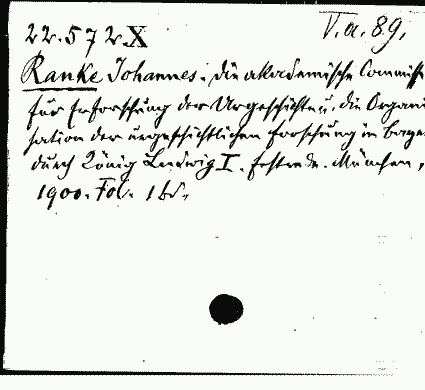 22.572.X
V.a.89,
Ranke Johannes. Die akademische Commiss
für Erforschung der Urgeschichte u. die Organi
sation der urgeschichtlichen Forschung in Baye
durch König Ludwig I. Festrede. München,
1900. Fol. 1 Bd.